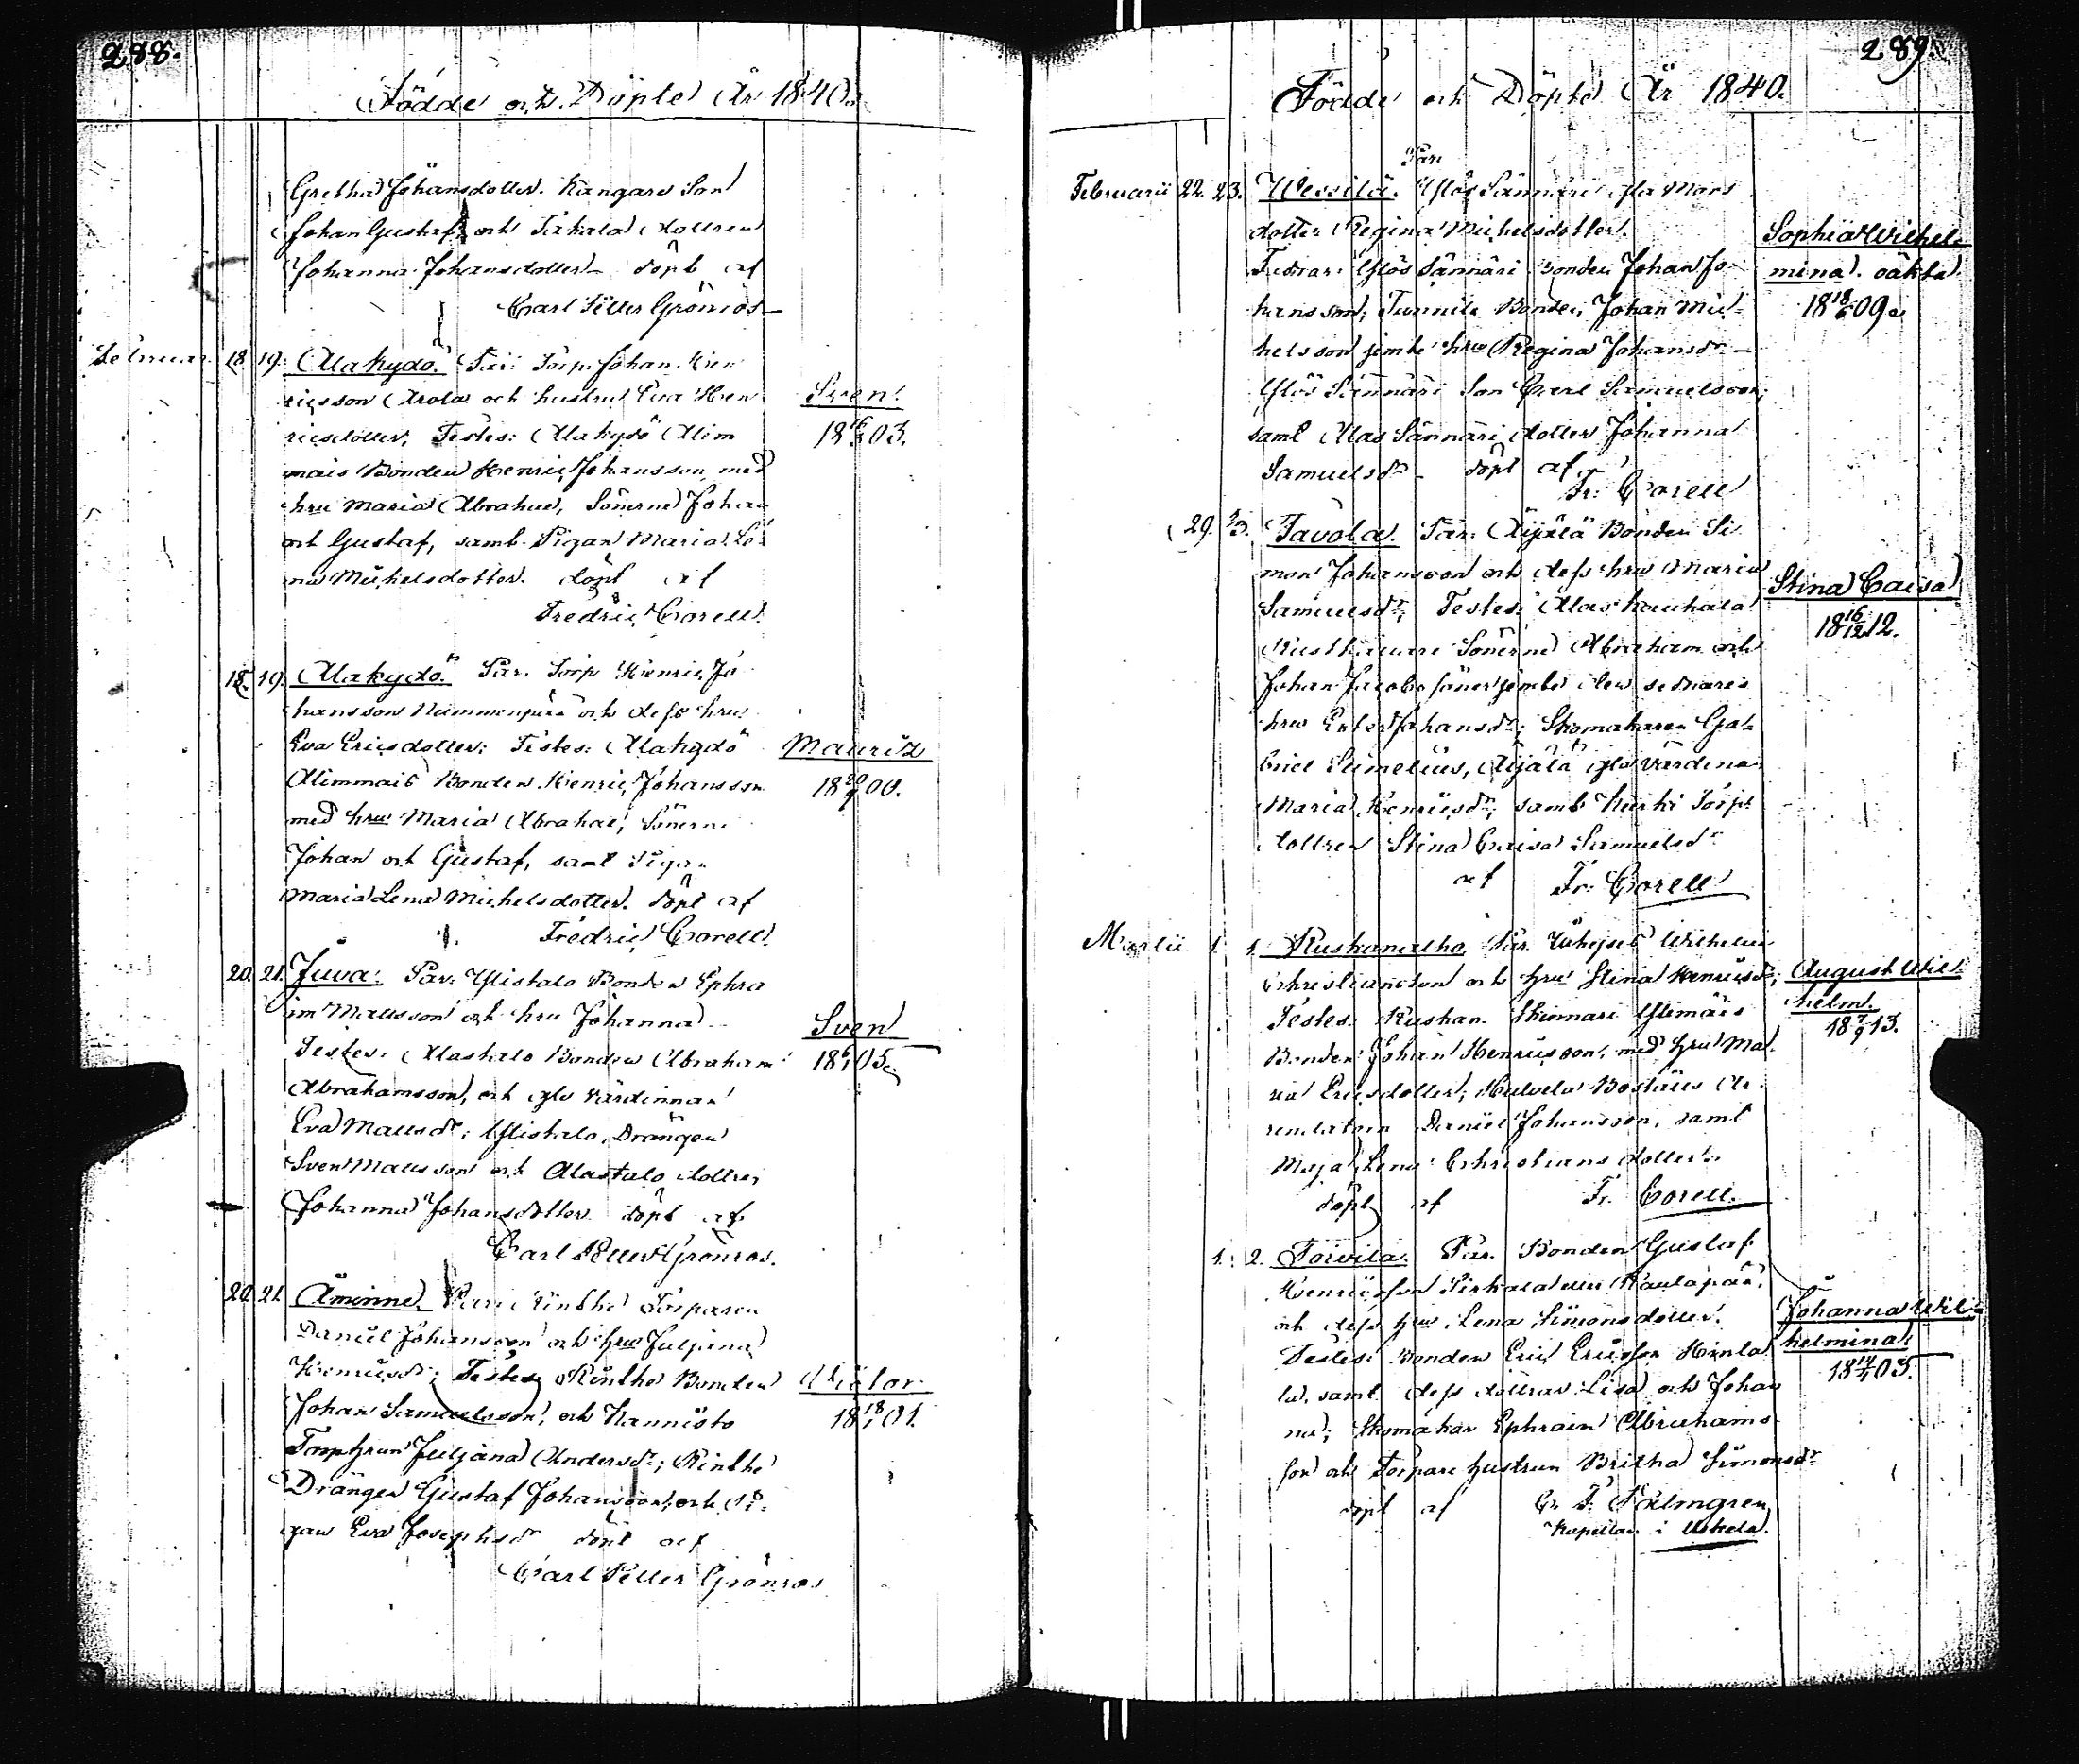 288.
Födde och Döpte År 1840.
Gretha Johansdotter. Kangare Son
Johan Gustaf, och Pirkala dottren
Johanna Johansdotter döpt af
Carl Petter Grönros
Februar. 18. 19. Alakydö. Par: Torp. Johan Hen
ricsson Arola och hustru Eva Hen
ricsdotter, Testes: Alakydö Alim
mais Bonden Henric Johansson med
hru Maria Abrahad, Sönerne Johan
och Gustaf, samt Pigan Maria Le
na Michelsdotter. döpt af
Fredric Corell.
Sven
18 16/3 03.
18. 19. Alakydö. Par. Torp Henric Jo
hansson Nummenpää och dess hru
Eva Ericsdotter; Testes: Alakydö
Alimmais Bonden Henric Johansson
med hru Maria Abrahad, Sönerne
Johan och Gustaf, samt Pigan
Maria Lena Michelsdotter. döpt af
Fredric Corell.
Mauritz
18 20/9 00.
20. 21. Juva: Par: Ylistalo Bonden Ephra
im Mattsson och hru Johanna
Testes: Alastalo Bonden Abraham
Abrahamsson, och gla Värdinnan
Eva Mattsdr; Ylistalo Drängen
Sven Mattsson och Alastalo dottren
Johanna Johansdotter döpt af
Carl Petter Grönros.
Sven
18 6/1 05.
20. 21. Åminne. Par: Rinthe Torparen
Daniel Johansson och hru Juljana
Henricsdr; Testes Rinthe Bonden
Johan Samuelsson, och Kannisto
Torphrun Juljana Andersdr; Rinthe
Drängen Gustaf Johansson, och Pi-
gan Eva Josephsdr döpt af
Carl Petter Grönros
Victor
18 18/1 01.
289.
Födde och Döpte År 1840.
Februarii 22. 23. Wessilä. Par: Yllös Sännäri fla Mors
dotter Regina Michelsdotter.
Yllös Sännäri Bonden Johan Jo-
hansson, Tunnila Bonden Johan Mic-
helsson jemte hru Regina Johansdr
Yllös Sännäri Son Carl Samuelsson,
samt Alas Sännäri dotter Johanna
Samuelsdr döpt af
Fr: Corell
Sophia Wilhel-
mina. oäkta
18 18/6 09.
29. 1/3. Tavola. Par: Äijälä Bonden Si
mon Johansson och dess hru Maria
Samuelsdr; Testes: Alas Kauhala
Rusthållare Sönerne Abraham och
Johan Jacobs söner jemte den sednares
hru Ester Johansdr; Skomakaren Ga-
briel Limelius, Äijälä gla Värdinnan
Maria Henricsdr; samt Kurki Torp.
dottren Stina Caisa Samuelsdr
af Fr: Corell
Stina Caisa
18 16/12 12.
Martii 1. 1. Ruskanalho. Par: Wilhelm
Christiansson och hru Stina Henricsdr;
Testes: Ruskan. Skinnari Ylimäis
Bonden Johan Henricsson, med hru Ma-
ria Ericsdotter; Hulvela Boställs Ar-
rendatorn Daniel Johansson, samt
Maja Lena Christiansdotter.
döpt af Fr. Corell.
August Wil-
helm.
18 7/9 13.
1. 2. Toivila. Par. Bonden Gustaf
Henricsson Pirkala eller Raulapää,
och dess hru Lena Simonsdotter.
Testes: Bonden Eric Ericsson Hinla
la, samt dess döttrar Lisa och Johan
na; Skomakar Ephraim Abrahams
son och Torpare hustrun Britha Simonsdr
döpt af C. F. Palmgren
Kapellan i Uskela.
Johanna Wil-
helmina
18 14/1 05.